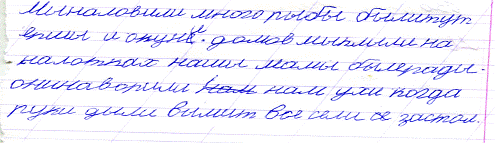 Мыналовили много рыбы былитут
ерши и окуне. домов мыплыли на
налотках наши мамы былерады.
онинаворили нам ухи когда
руки дыли вымит все сели се застол.